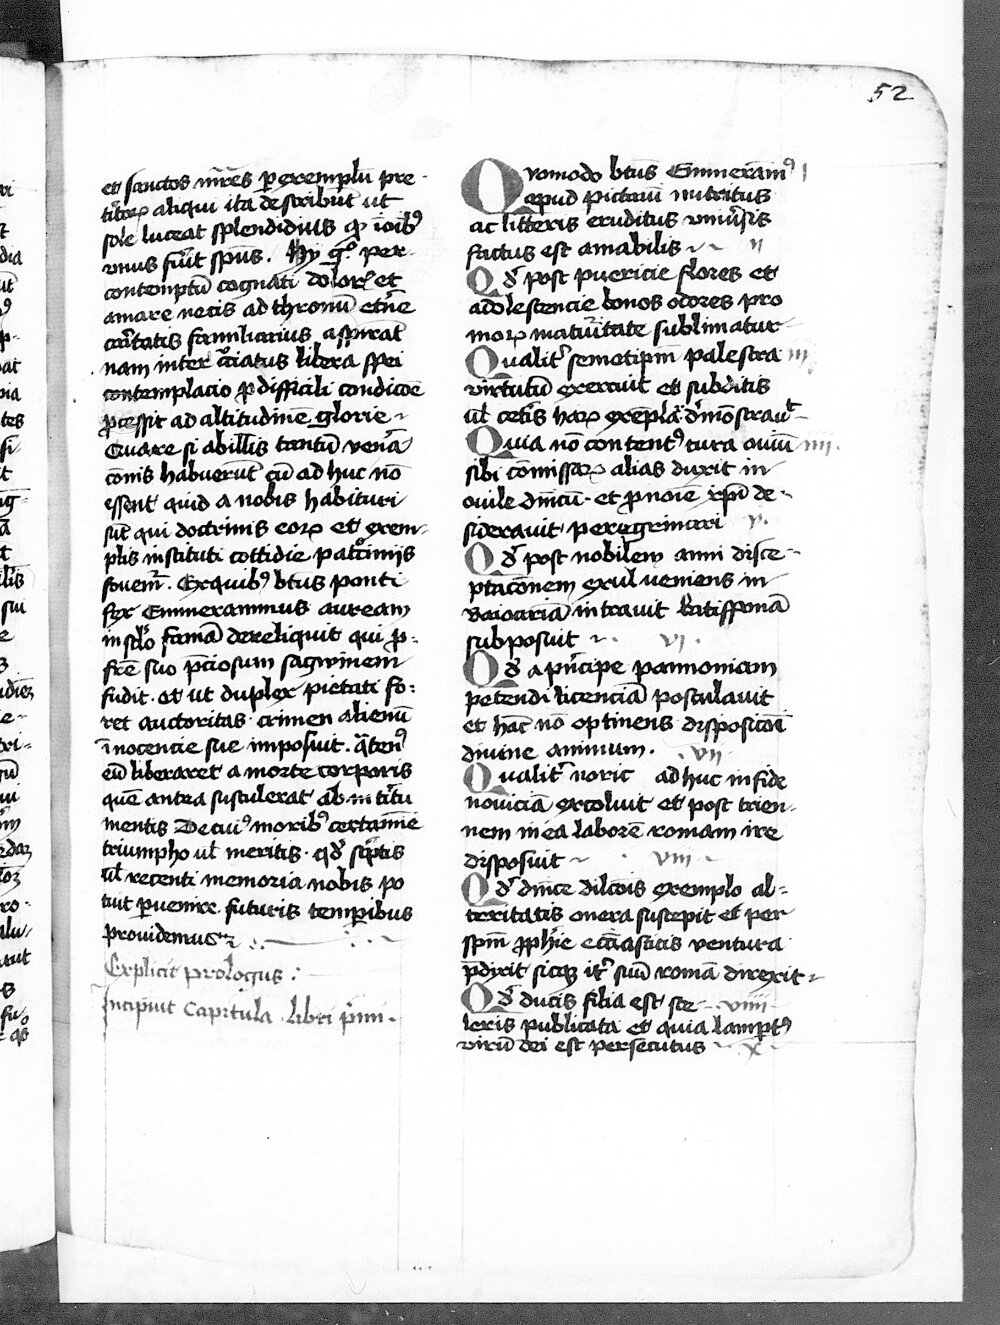 52
et sanctos mr̄es ꝑ exemplū pre-
titorꝝ aliqui ita describūt̄ ut
sole luceat splendidius qꝫ ī oībꝰ
vnus fuit sp̄us. Hij gͦ per-
contemptū cognati doloris et
amare necis ad thronū etn̄e
cāritatis familiarius aspirāt
nam inter cͣciatus libera spei
contemplacio ꝓ difficili condicōe
ꝓcessit ad altitudinē glorie
Quare si ab illis tantū venīa
comīs habuerūt cū ad huc nō
essent quid a nobis habituri
sūt qui doctrinis eorꝝ et exem-
plis instituti cottidie patͦcinijs
fovemͬ. Ex quibꝰ btūs ponti
fex Emmerammus auream
in sclō famā dereliquit qui ꝓ-
fr̄e suo p̄ciosum sagwinem
fudit. et ut duplex pietati fo-
ret auctoritas crimen alienū
īnocencie sue imposuit. qͣtenꝰ
eū liberaret a morte corporis
quē antea sustulerat ab in titu
mentis De cuiꝰ moribꝰ certamīe
triumpho ul̄ meritis qd̓ sc̄ptis
ul̄ recenti memoria nobis po
tuit ꝑuenire futuris temꝑibus
prouidemus
Explicit prologus :
Incipiūt Capitula libri p̄mi
Quomodo btūs Emmeramꝰ I
apud pictauū nutritus
ac litteris eruditus vniūsis
factus est amabilis II
Qd̓ post puericie flores et
adolescencie bonos odores pro
morꝝ maturitate sublimatur
Qualitͬ semetipm̄ palestra III
virtutū exercuit et subditis
ul̄ cet̓is harꝝ exēpla dm̄ostrauͭ
Quia nō contentꝰ cura ouiū IIII.
sibi cōmissarꝝ alias duxit in
ouile dn̄icū. et ꝓ noīe xp̄i de-
siderauit peregrinari V.
Qd̓ post nobilem animi disce-
ptacōnem exul veniens in
Baioariā intrauit Ratisponā
subposuit VI.
Qd̓ a p̄ncipe pannoniam
petendi licenciā postulauit
et hāc nō optinens disposicōi
diuine animum. VII
Qualitͬ noric ad huc in fide
nouiciā excoluit et post trien-
nem in ea laborē romam ire
disposuit VIII
Qd̓ dīne dilcōis exemplo al-
teritatis onera suscepit et per
spm̄ ꝓph̄ie ecc̄asticis ventura
p̄dixit sicqꝫ itͬ suū romā direxit
Qd̓ ducis filia est sce- VIIII
leris publicata et quia lamptꝰ
virū dei est persecutus X